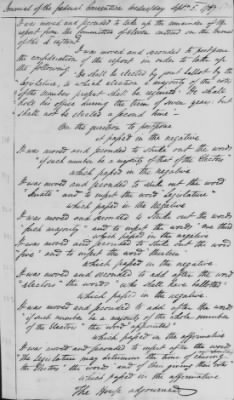 Journal of the federal Convention Wednesday Sept. 5. 1787
It was moved and seconded to take up the remainder of the
report from the Committee of eleven entered on the Journal
of the
It was moved and seconded to postpone
the consideration of the report in order to take up
the following
"He shall be elected by joint ballot by the
Legislature, to which election a majority of the votes
of the members present shall be required: He shall
hold his office during the term of seven years; but
shall not be elected a second time —
On the question to postpone
it passed in the negative
It was moved and seconded to strike out the words
"if such number be a majority of that of the Electors"
which passed in the negative
It was moved and seconded to strike out the word
"Senate" and to insert the word "Legislature"
which passed in the negative
It was moved and seconded to strike out the words
"such majority" and to insert the words "one third"
which passed in the negative
It was moved and seconded to strike out the word
"five" and to insert the word "thirteen"
which passed in the negative
It was moved and seconded to add after the word
"electors" the words "who shall have balloted"
which passed in the negative
It was moved and seconded to add after the words
"if such number be a majority of the whole number
of the Electors" the word "appointed"
which passed in the affirmative
It was moved and seconded to insert after the words
"The Legislature may determine the time of chusing
the Electors" the words "and of their giving their votes"
which passed in the affirmative
The House adjourned